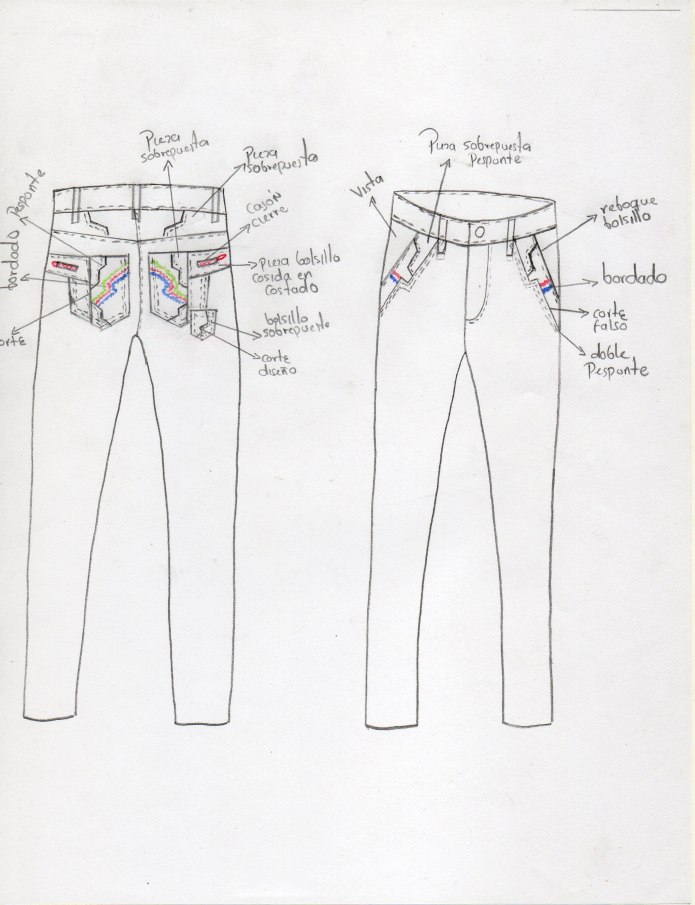 Pieza
sobrepuesta
Pieza
sobrepuesta
Pesponte
cajón
cierre
bordado
pieza bolsillo
cosida en
costado
bolsillo
sobrepuesto
corte
diseño
Pieza sobrepuesta
Pesponte
Vista
reboque
bolsillo
bordado
corte
falso
doble
Pesponte